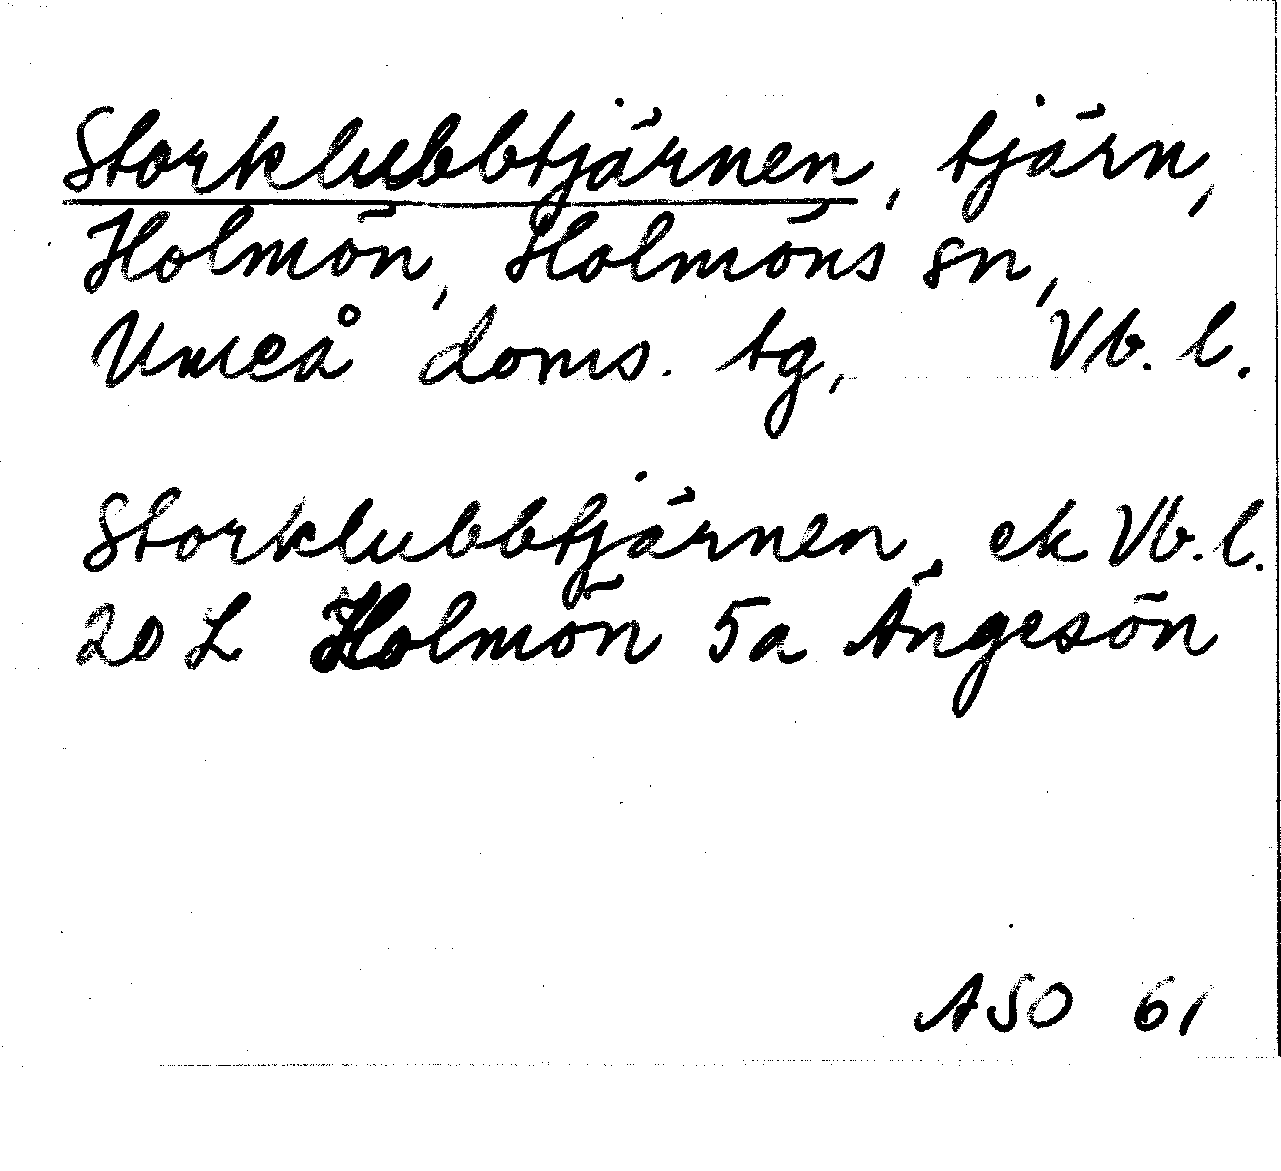 Storklubbtjärnen, tjärn,
Holmön, Holmöns sn,
Umeå doms. tg, Vb. l.
Storklubbtjärnen, ek Vb. l.
20 L Holmön 5a Ängesön
ASO 61